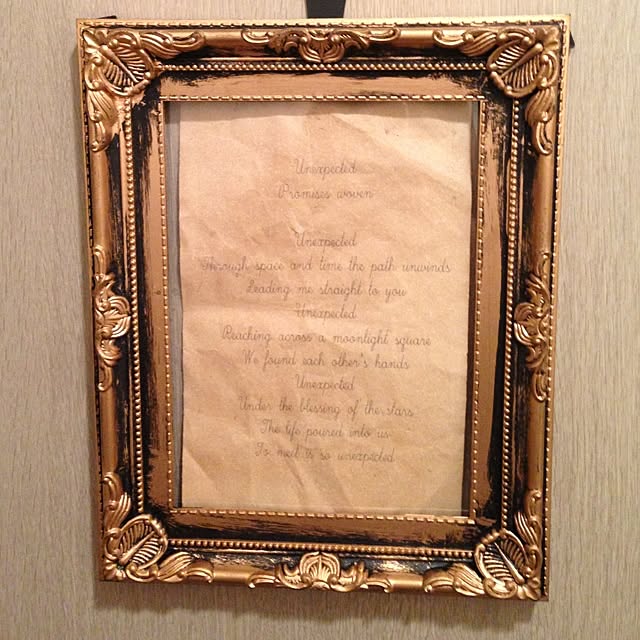 Unexpected
Promises woven
Unexpected
Through space and time the path unwinds
Leading me straight to you
Unexpected
Reaching across a moonlight square
We found each other's hands
Unexpected
Under the blessing of the stars
The life poured into us
To meet is so unexpected